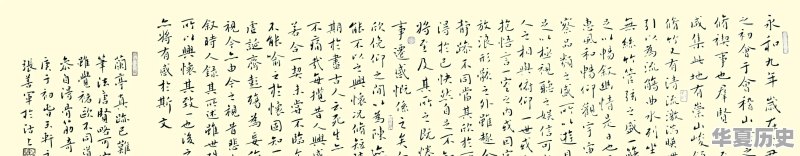 永和九年歲在癸
之初會于會稽山
脩禊事也群賢畢
咸集此地有崇山峻
脩竹又有清流激湍映
引以為流觴曲水列坐
無絲竹管弦之盛一觴
之以暢敘幽情是日也
惠風和暢仰觀宇宙
察品類之盛所以遊目
之以極視聽之娛信可
之相與俯仰一世或
抱悟言一室之內或因
放浪形骸之外雖趣舍
靜躁不同當其欣於
得於己快然自足不知
將至及其所之既惓
事遷感慨係之矣
欣俛仰之間以為陳
能不以之興懷況脩短
期於盡古人云死生
不痛哉每攬昔人興感
若合一契未嘗不臨
不能喻之於懷固知一
虛誕齊彭殤為妄作
視今亦由今之視昔悲
敘時人錄其所述雖世
所以興懷其致一也後之
亦將有感於斯文
蘭亭真跡已難
筆法唐賢
雖覺褚歐不同
自清骨
庚子初
張善軍於
华夏历史